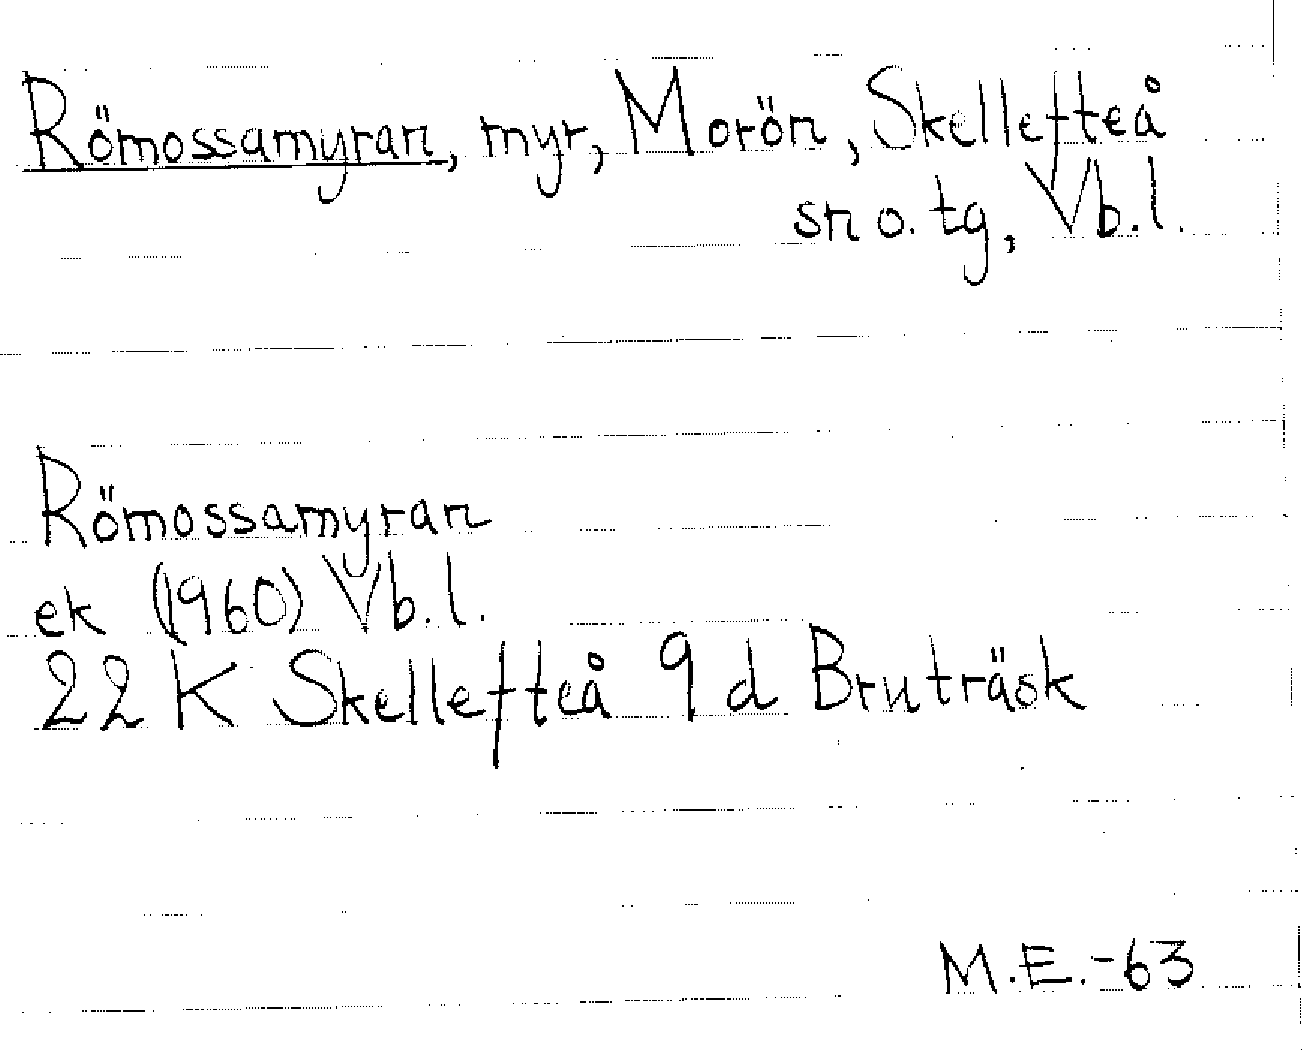 Römossamyran, myr, Morön, Skellefteå
sn o. tg, Vb.l.
Römossamyran
ek (1960) Vb.l.
22 K Skellefteå 9 d Bruträsk
M.E.-63